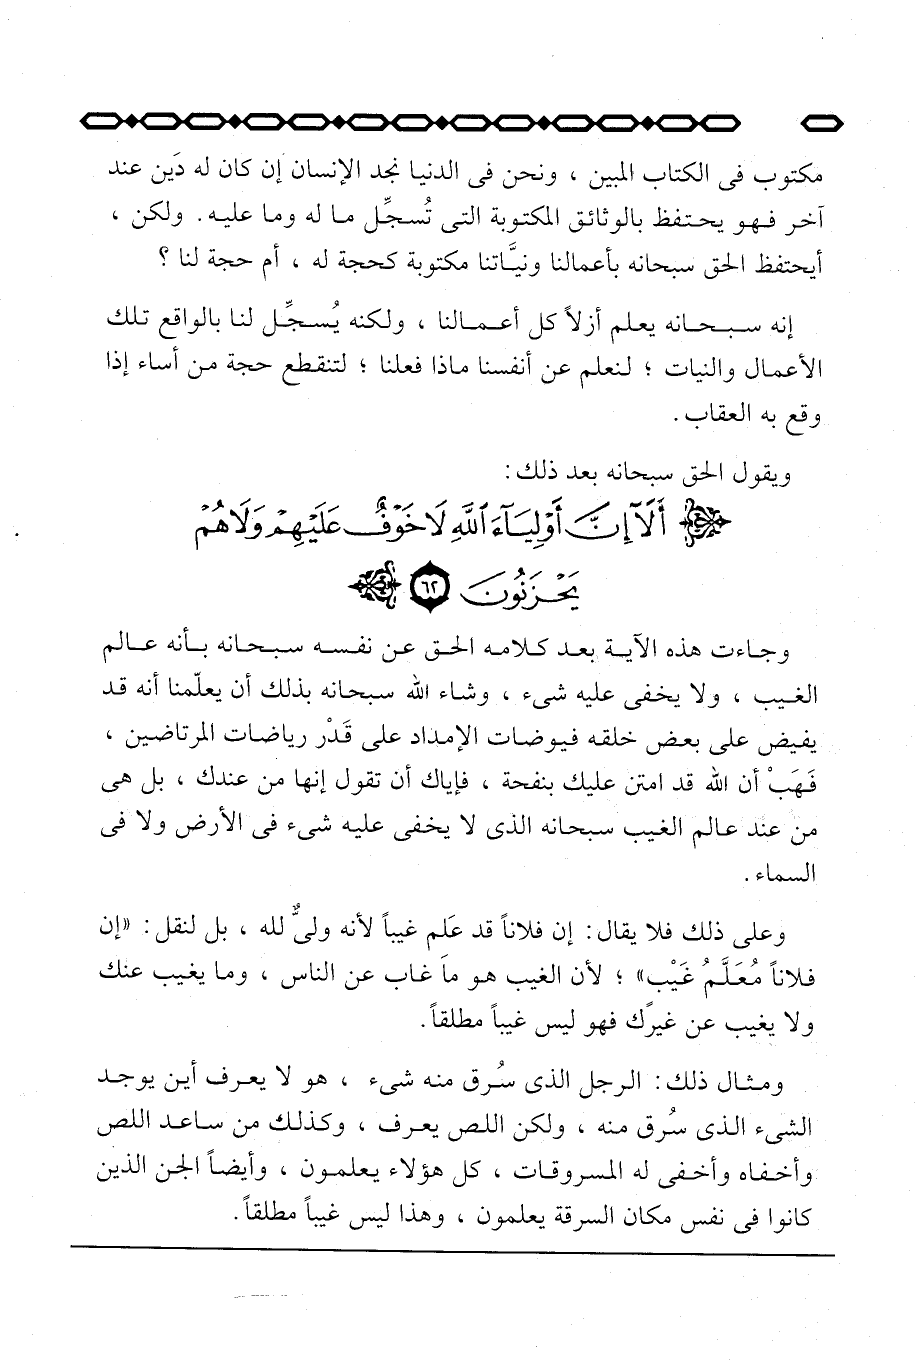 مكتوب فى الكتاب المبين ، ونحن فى الدنيا نجد الإنسان إن كان له دَين عند
آخر فهو يحتفظ بالوثائق المكتوبة التى تُسجِّل ما له وما عليه. ولكن ،
أيحتفظ الحق سبحانه بأعمالنا ونيَّاتنا مكتوبة كحجة له ، أم حجة لنا ؟
إنه سبحانه يعلم أزلاً كل أعمالنا ، ولكنه يُسجِّل لنا بالواقع تلك
الأعمال والنيات ؛ لنعلم عن أنفسنا ماذا فعلنا ؛ لتنقطع حجة من أساء إذا
وقع به العقاب.
ويقول الحق سبحانه بعد ذلك:
أَلَآ إِنَّ أَوْلِيَآءَ ٱللَّهِ لَا خَوْفٌ عَلَيْهِمْ وَلَا هُمْ
يَحْزَنُونَ ٦٢
وجاءت هذه الآية بعد كلامه الحق عن نفسه سبحانه بأنه عالم
الغيب ، ولا يخفى عليه شىء ، وشاء الله سبحانه بذلك أن يعلّمنا أنه قد
يفيض على بعض خلقه فيوضات الإمداد على قَدْر رياضات المرتاضين ،
فَهَبْ أن الله قد امتن عليك بنفحة ، فإياك أن تقول إنها من عندك ، بل هى
من عند عالم الغيب سبحانه الذى لا يخفى عليه شىء فى الأرض ولا فى
السماء .
وعلى ذلك فلا يقال: إن فلاناً قد عَلم غيباً لأنه ولىٌّ لله ، بل لنقل: «إن
فلاناً مُعَلَّمُ غَيْب» ؛ لأن الغيب هو ما غاب عن الناس ، وما يغيب عنك
ولا يغيب عن غيرك فهو ليس غيباً مطلقاً.
ومثال ذلك: الرجل الذى سُرق منه شىء ، هو لا يعرف أين يوجد
الشىء الذى سُرق منه ، ولكن اللص يعرف ، وكذلك من ساعد اللص
وأخفاه وأخفى له المسروقات ، كل هؤلاء يعلمون ، وأيضاً الجن الذين
كانوا فى نفس مكان السرقة يعلمون ، وهذا ليس غيباً مطلقاً.